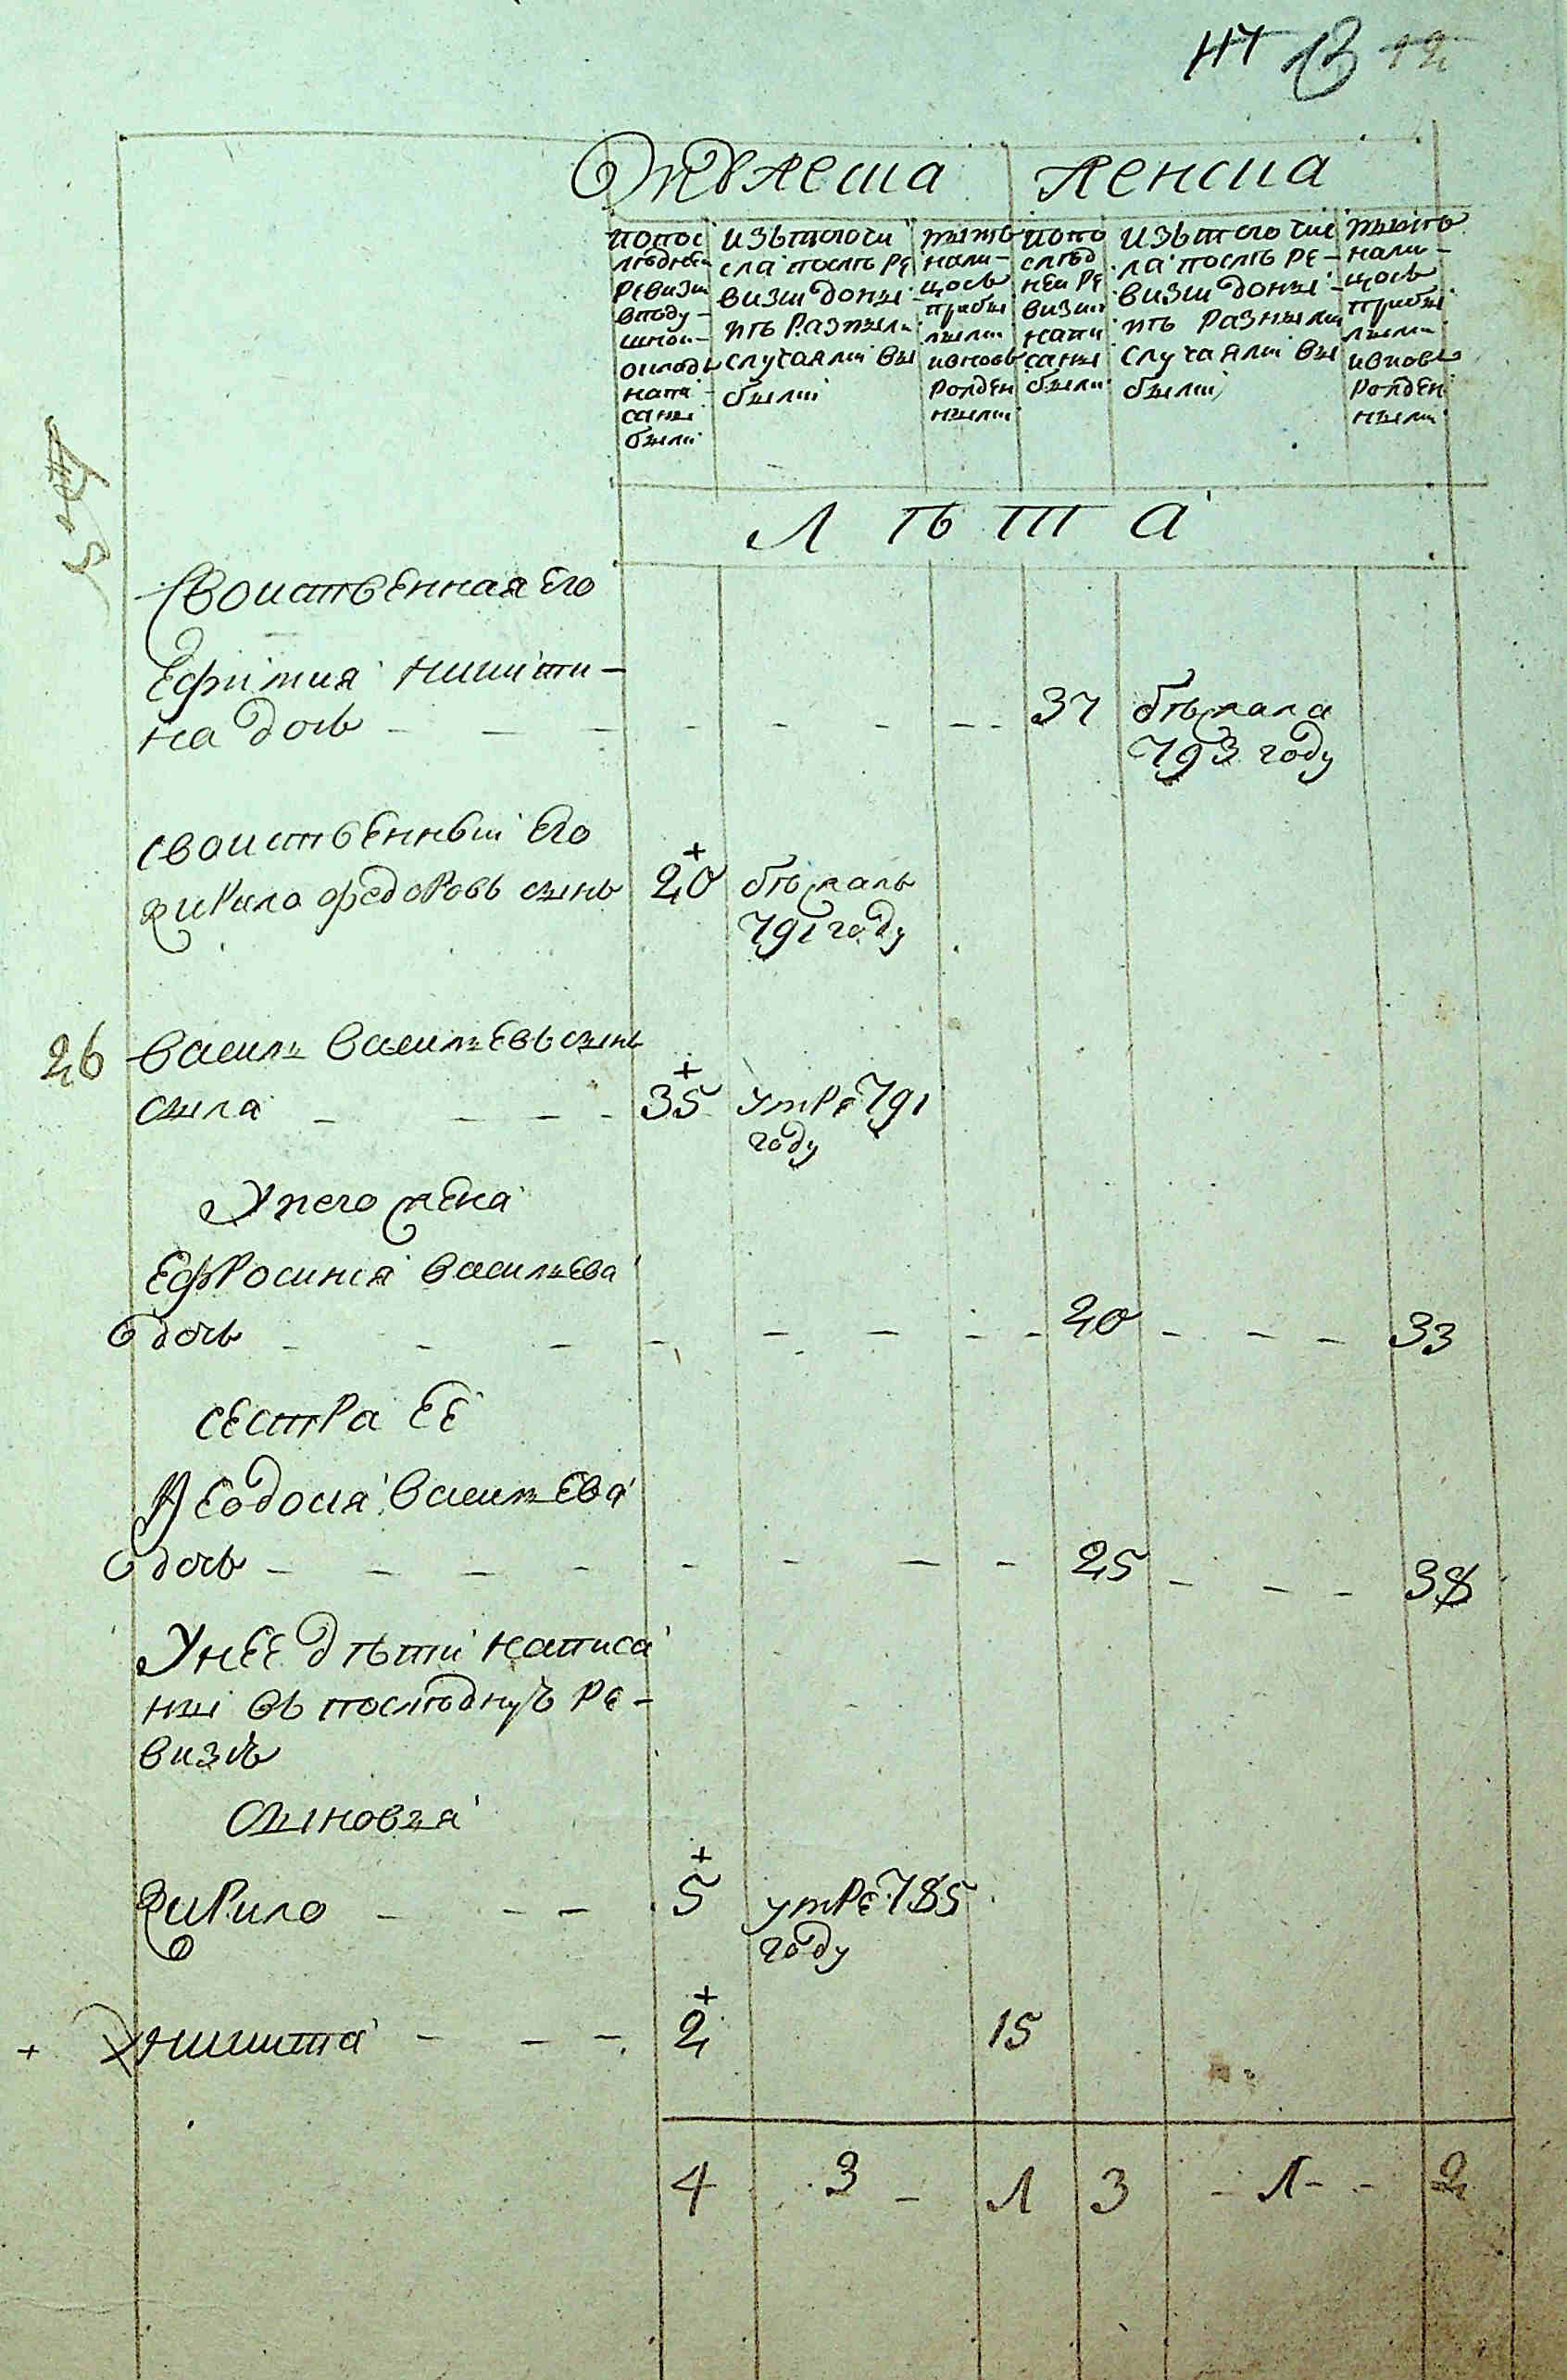 13 12
Мужеска женска
Попос
лѣдней
ревизи
вподу-
шном
окладѣ
напи-
саны
были
изътогочи
сла послѣ ре
визии доны-
нѣ разными
случаями вы
были
нынѣ
нали-
цось
прибы
лыми
ивновь
рожден
ными
попо
слѣд
ней ре
визии
напи
саны
были
изътого чис
ла послѣ ре-
визии доны-
нѣ разными
случаями вы
были
нынѣ
нали-
цось
прибы
лыми
ивновь
рожден
ными
Л ѣ т а
Свойственная Его
Ефимия никити-
на дочь - - - 37 бѣжала
793 году
свойственный Его
кирило федоровъ сынъ 20 бѣжалъ
791 году
26 василь васильевъ сынъ
сыла - - - 35 умре 791
году
Унего жена
Ефросиния васильева
дочь - - - 20 - - - 33
сестра ЕЕ
Феодосия васильева
дочь - - - 25 - - - 38
УнЕЕ дѣти написа
ны въ послѣдную ре-
визию
Сыновья
Кирило - - - 5 умре 785
году
+ никита - - - 2 15
4 3 - 1 3 - 1 - - 2